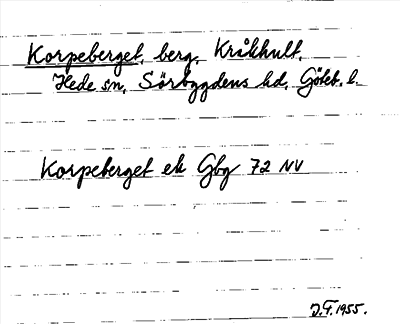 Korpeberget, berg, Kråkhult,
Hede sn, Sörbygdens hd, Göteb. l.
Korpeberget ek Gbg 72 NV
J.F. 1955.